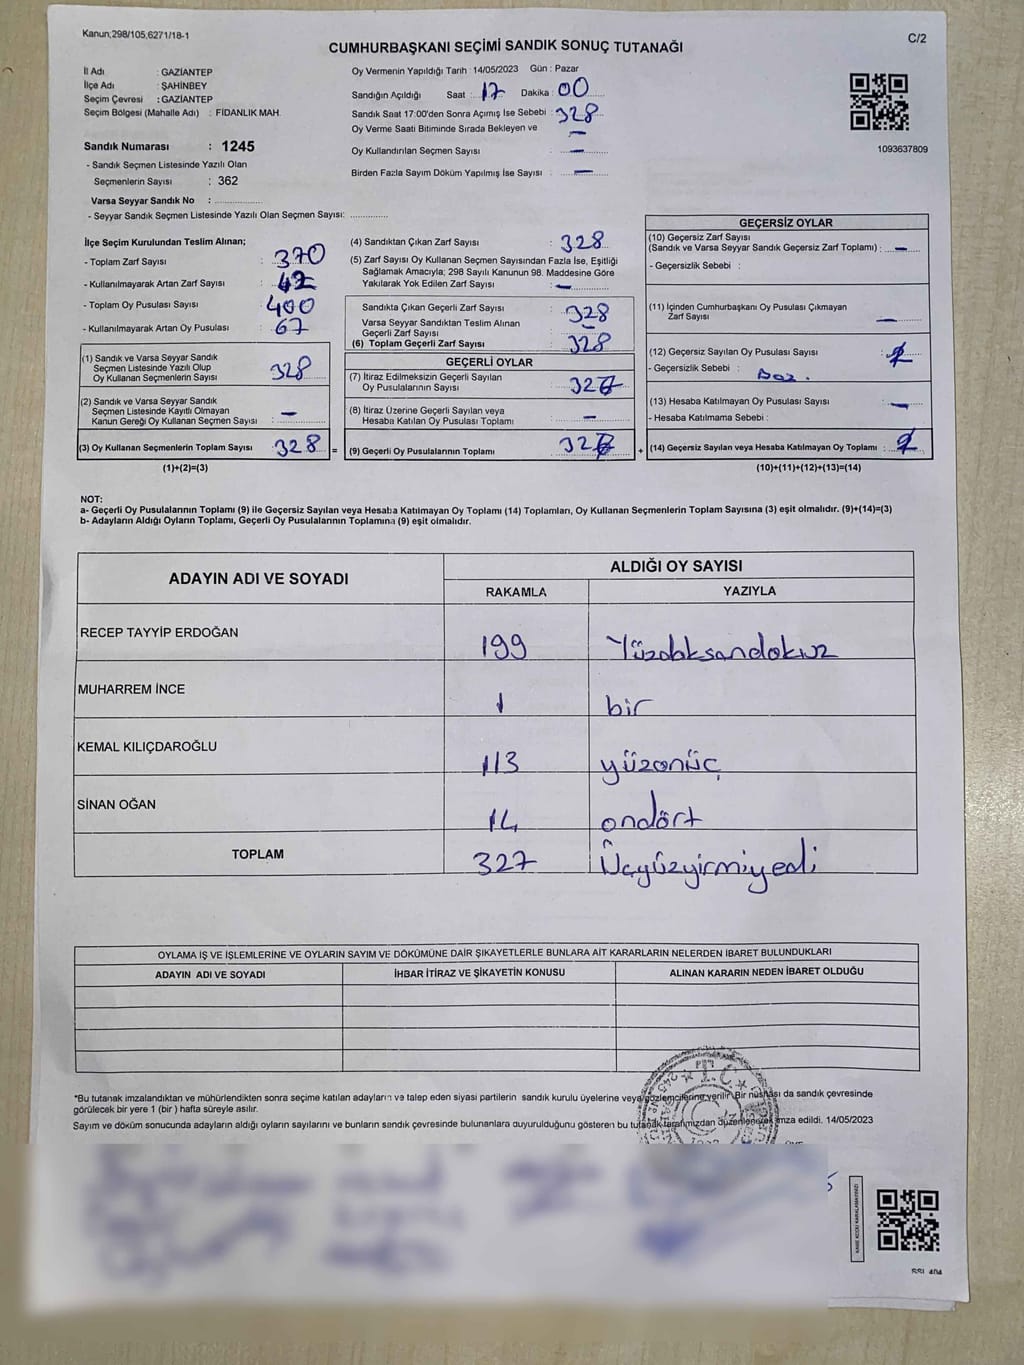 Kanun;298/105,6271/18-1
C/2
CUMHURBAŞKANI SEÇİMİ SANDIK SONUÇ TUTANAĞI
İl Adı : GAZİANTEP
İlçe Adı : ŞAHİNBEY
Seçim Çevresi : GAZİANTEP
Seçim Bölgesi (Mahalle Adı) : FİDANLIK MAH.
Sandık Numarası : 1245
- Sandık Seçmen Listesinde Yazılı Olan
Seçmenlerin Sayısı : 362
Varsa Seyyar Sandık No :
- Seyyar Sandık Seçmen Listesinde Yazılı Olan Seçmen Sayısı:
Oy Vermenin Yapıldığı Tarih : 14/05/2023 Gün : Pazar
Sandığın Açıldığı Saat : 17 Dakika : 00
Sandık Saat 17:00'den Sonra Açımış İse Sebebi : 328
Oy Verme Saati Bitiminde Sırada Bekleyen ve : —
Oy Kullandırılan Seçmen Sayısı : —
Birden Fazla Sayım Döküm Yapılmış İse Sayısı : —
1093637809
İlçe Seçim Kurulundan Teslim Alınan;
- Toplam Zarf Sayısı : 370
- Kullanılmayarak Artan Zarf Sayısı : 42
- Toplam Oy Pusulası Sayısı : 400
- Kullanılmayarak Artan Oy Pusulası : 67
(1) Sandık ve Varsa Seyyar Sandık
Seçmen Listesinde Yazılı Olup
Oy Kullanan Seçmenlerin Sayısı : 328
(2) Sandık ve Varsa Seyyar Sandık
Seçmen Listesinde Kayıtlı Olmayan
Kanun Gereği Oy Kullanan Seçmen Sayısı : —
(3) Oy Kullanan Seçmenlerin Toplam Sayısı : 328
(1)+(2)=(3)
(4) Sandıktan Çıkan Zarf Sayısı : 328
(5) Zarf Sayısı Oy Kullanan Seçmen Sayısından Fazla İse, Eşitliği
Sağlamak Amacıyla; 298 Sayılı Kanunun 98. Maddesine Göre
Yakılarak Yok Edilen Zarf Sayısı : —
Sandıkta Çıkan Geçerli Zarf Sayısı : 328
Varsa Seyyar Sandıktan Teslim Alınan
Geçerli Zarf Sayısı : —
(6) Toplam Geçerli Zarf Sayısı : 328
GEÇERLİ OYLAR
(7) İtiraz Edilmeksizin Geçerli Sayılan
Oy Pusulalarının Sayısı : 327
(8) İtiraz Üzerine Geçerli Sayılan veya
Hesaba Katılan Oy Pusulası Toplamı : —
= (9) Geçerli Oy Pusulalarının Toplamı : 327
GEÇERSİZ OYLAR
(10) Geçersiz Zarf Sayısı
(Sandık ve Varsa Seyyar Sandık Geçersiz Zarf Toplamı) : —
- Geçersizlik Sebebi :
(11) İçinden Cumhurbaşkanı Oy Pusulası Çıkmayan
Zarf Sayısı : —
(12) Geçersiz Sayılan Oy Pusulası Sayısı :
- Geçersizlik Sebebi :
(13) Hesaba Katılmayan Oy Pusulası Sayısı : —
- Hesaba Katılmama Sebebi :
+ (14) Geçersiz Sayılan veya Hesaba Katılmayan Oy Toplamı :
(10)+(11)+(12)+(13)=(14)
NOT:
a- Geçerli Oy Pusulalarının Toplamı (9) ile Geçersiz Sayılan veya Hesaba Katılmayan Oy Toplamı (14) Toplamları, Oy Kullanan Seçmenlerin Toplam Sayısına (3) eşit olmalıdır. (9)+(14)=(3)
b- Adayların Aldığı Oyların Toplamı, Geçerli Oy Pusulalarının Toplamına (9) eşit olmalıdır.
ADAYIN ADI VE SOYADI
ALDIĞI OY SAYISI
RAKAMLA YAZIYLA
RECEP TAYYİP ERDOĞAN 199 Yüzdoksandokuz
MUHARREM İNCE 1 bir
KEMAL KILIÇDAROĞLU 113 yüzonüç
SİNAN OĞAN 14 ondört
TOPLAM 327 Üçyüzyirmiyedi
OYLAMA İŞ VE İŞLEMLERİNE VE OYLARIN SAYIM VE DÖKÜMÜNE DAİR ŞİKAYETLERLE BUNLARA AİT KARARLARIN NELERDEN İBARET BULUNDUKLARI
ADAYIN ADI VE SOYADI İHBAR İTİRAZ VE ŞİKAYETİN KONUSU ALINAN KARARIN NEDEN İBARET OLDUĞU
*Bu tutanak imzalandıktan ve mühürlendikten sonra seçime katılan adayların ve talep eden siyasi partilerin sandık kurulu üyelerine veya gözlemcilerine verilir. Bir nüshası da sandık çevresinde
görülecek bir yere 1 (bir ) hafta süreyle asılır.
Sayım ve döküm sonucunda adayların aldığı oyların sayılarını ve bunların sandık çevresinde bulunanlara duyurulduğunu gösteren bu tutanak tarafımızdan düzenlenerek imza edildi. 14/05/2023